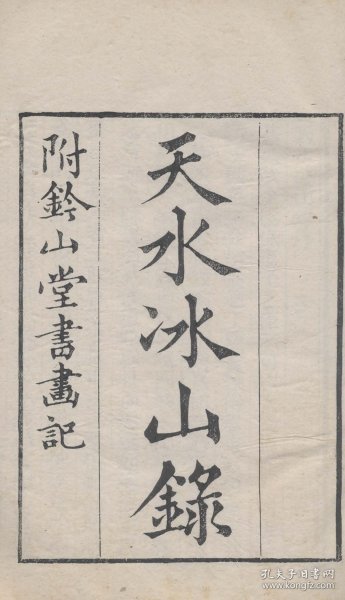 天水冰山錄
附鈐山堂書畫記
孔夫子旧书网
www.kongfz.com